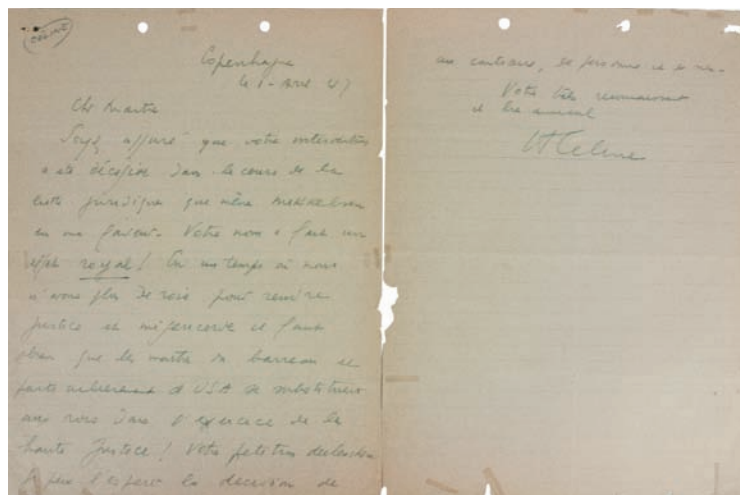 CELINE
Copenhague
le 1 - Avril 47
Cher Maître
Soyez assuré que votre intervention
a été décisive dans le cours de la
lutte juridique que mène Mikkelsen
en ma faveur. Votre nom a fait un
effet royal! En un temps où nous
n'avons plus de rois pour rendre
justice et miséricorde il faut
bien que les maîtres du barreau se
d'USA se substituent
aux rois dans l'exercice de la
haute Justice! Votre
je puis l'espérer la décision de
au contraire, de personne et de rien.
Votre très reconnaissant
et bien amical
LF Celine